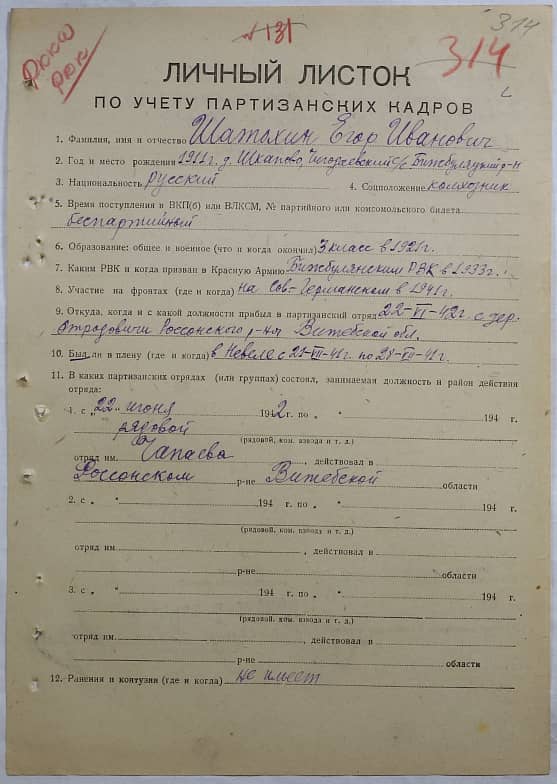 № 131
314
314
ЛИЧНЫЙ ЛИСТОК
ПО УЧЕТУ ПАРТИЗАНСКИХ КАДРОВ
1. Фамилия, имя и отчество Шатохин Егор Иванович
2. Год и место рождения 1911 г. д. Шкапово, с/с Бижбулякский р-н
3. Национальность русский 4. Соцположение колхозник
5. Время поступления в ВКП(б) или ВЛКСМ, № партийного или комсомольского билета
беспартийный
6. Образование: общее и военное (что и когда окончил) 3 класс в 1921 г.
7. Каким РВК и когда призван в Красную Армию Бижбулякским РВК в 1933 г.
8. Участие на фронтах (где и когда) на Сов-Германском в 1941 г.
9. Откуда, когда и с какой должности прибыл в партизанский отряд 22-VI-42 г. с дер.
Россонского р-на Витебской обл.
10. Был ли в плену (где и когда) в Невеле с 21-VII-41 г. по 28-VII-41 г.
11. В каких партизанских отрядах (или группах) состоял, занимаемая должность и район действия
отряда:
1. с „22„ июня 1942 г. по „ “ 194 г.
рядовой
(рядовой, ком. взвода и т. д.)
отряд им. Чапаева, действовал в
Россонском р-не Витебской области
2. с „ “ 194 г. по „ “ 194 г.
(рядовой, ком. взвода и т. д.)
отряд им. , действовал в
р-не области
3. с „ “ 194 г. по „ “ 194 г.
(рядовой, ком. взвода и т. д.)
отряд им. , действовал в
р-не области
12. Ранения и контузии (где и когда) не имеет